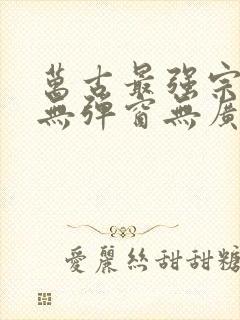 萬古最強宗
無彈窗無廣
愛麗絲甜甜糖